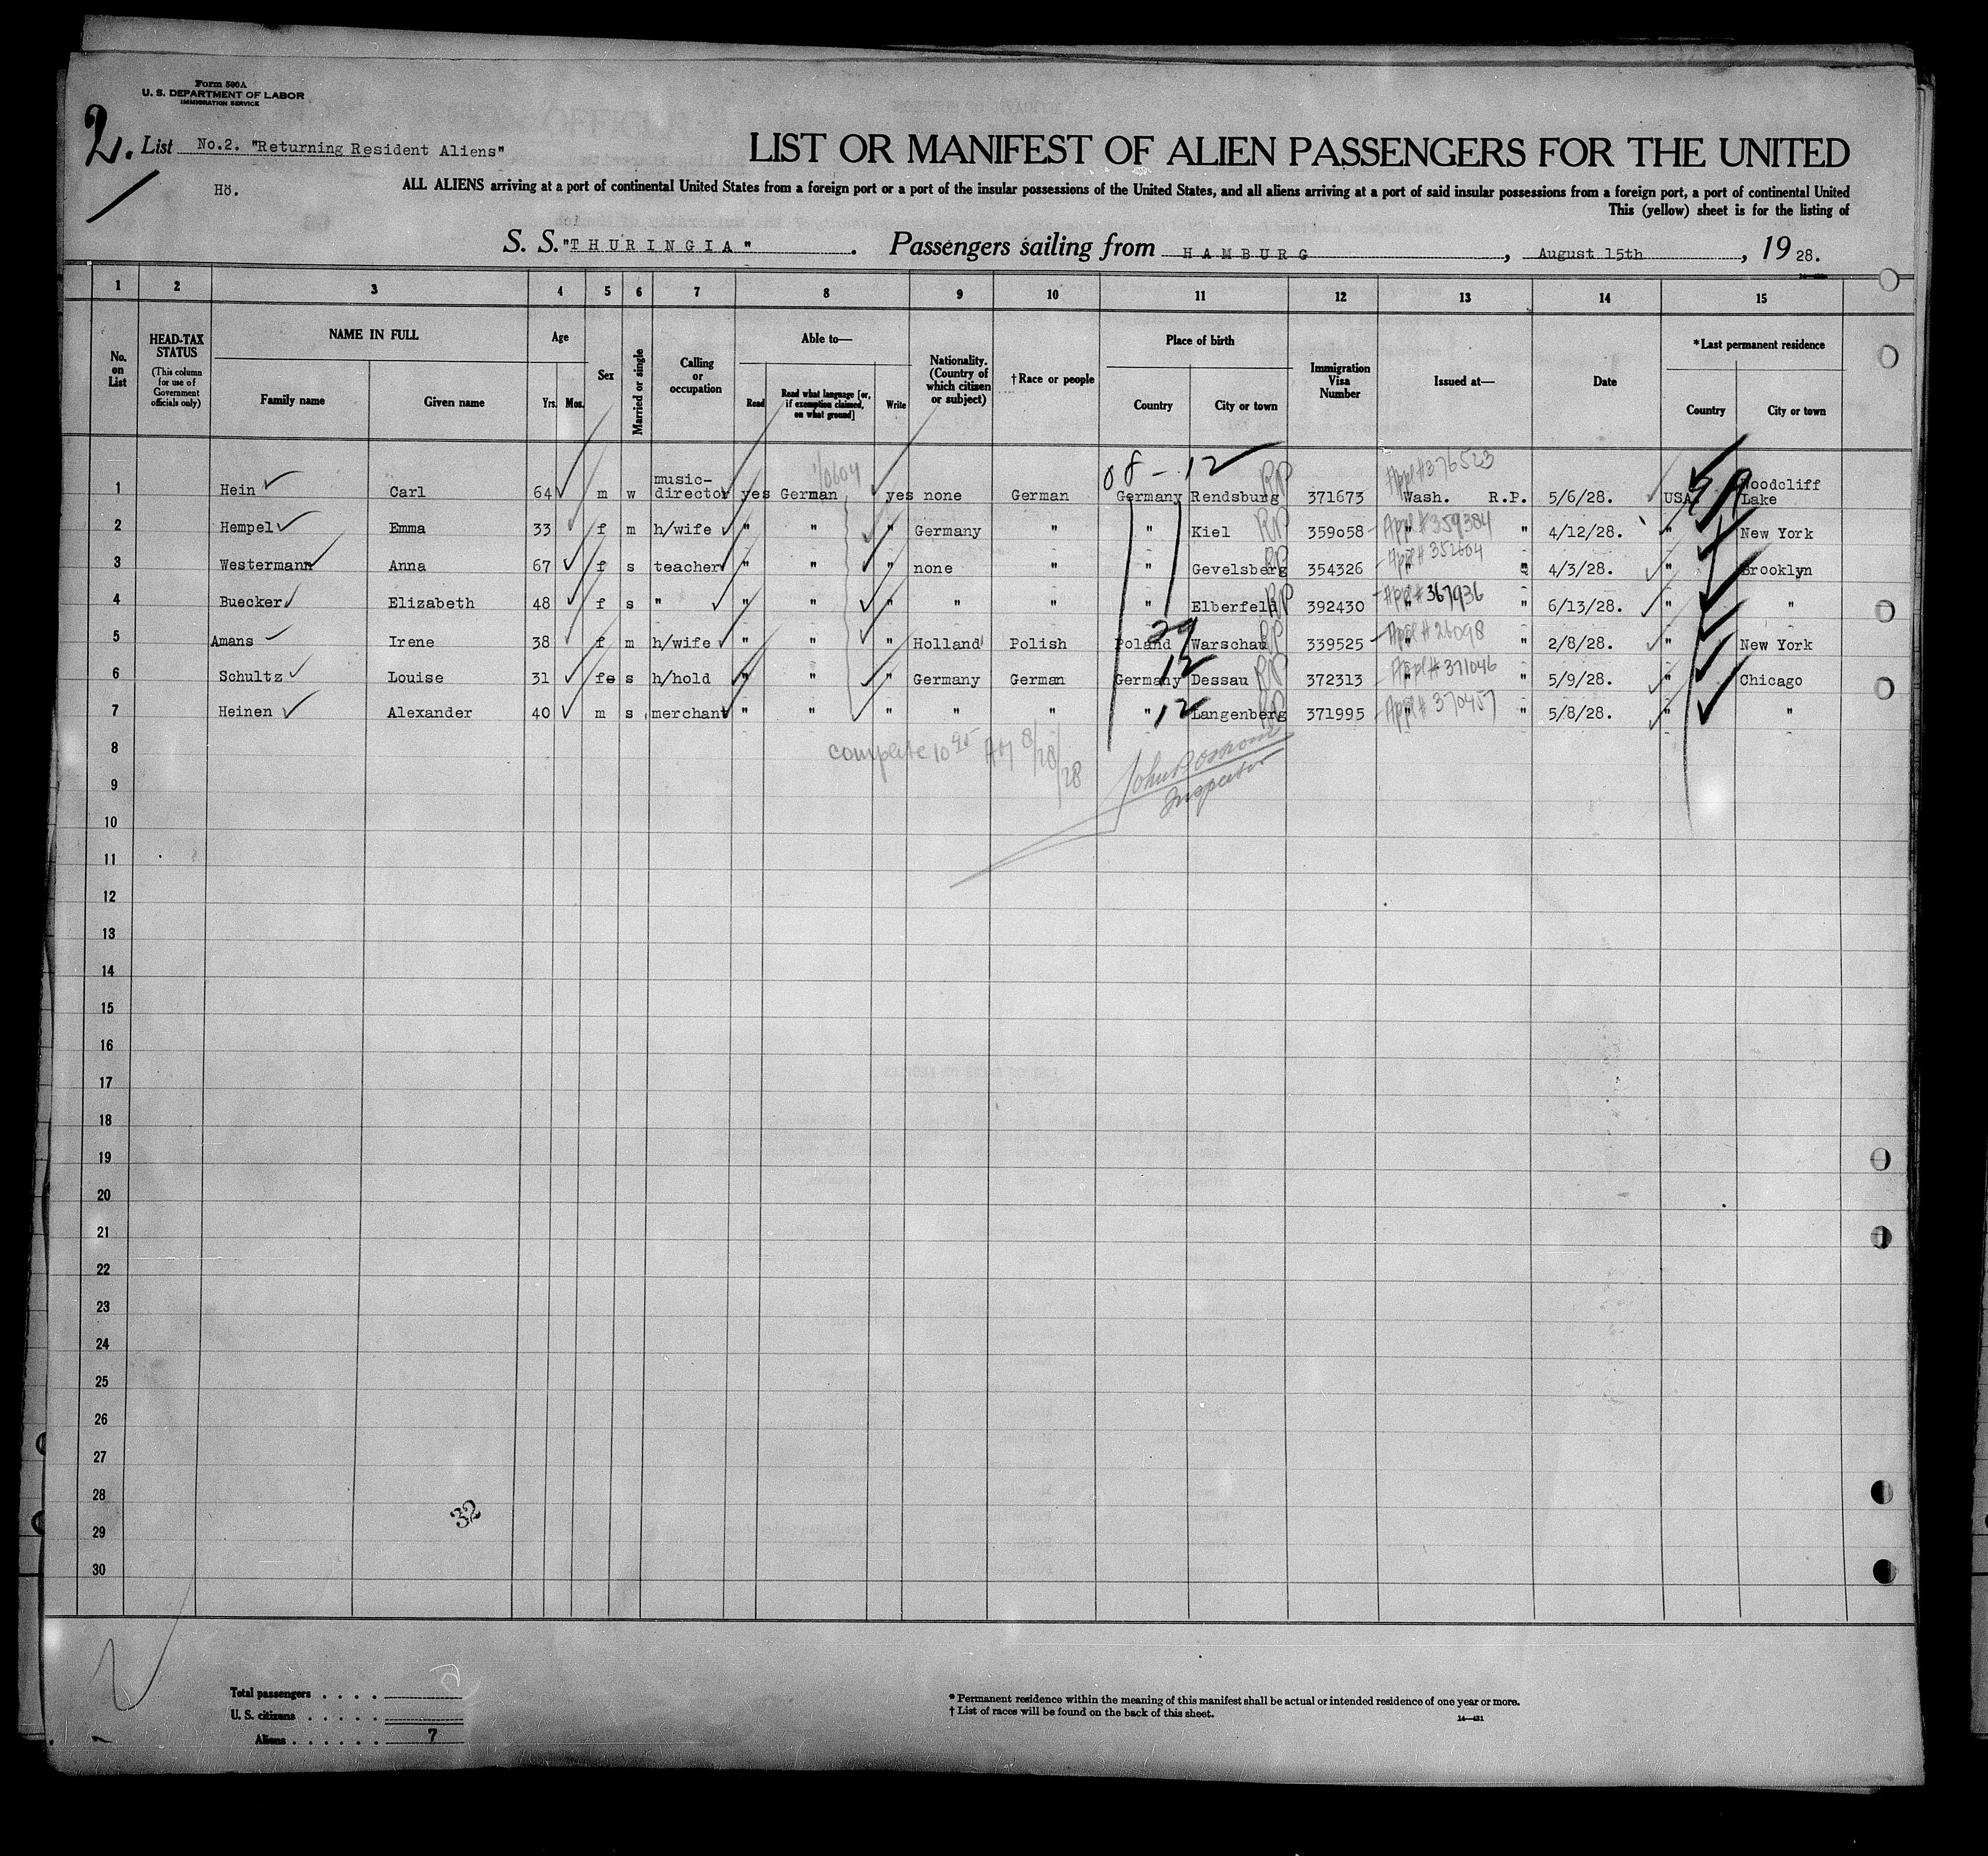 Form 500A
U. S. DEPARTMENT OF LABOR
IMMIGRATION SERVICE
2.
List No.2. "Returning Resident Aliens"
Hö.
LIST OR MANIFEST OF ALIEN PASSENGERS FOR THE UNITED
ALL ALIENS arriving at a port of continental United States from a foreign port or a port of the insular possessions of the United States, and all aliens arriving at a port of said insular possessions from a foreign port, a port of continental United
This (yellow) sheet is for the listing of
S. S. "THURINGIA". Passengers sailing from HAMBURG, August 15th, 1928.
1 2 3 4 5 6 7 8 9 10 11 12 13 14 15
No. on List
HEAD-TAX STATUS (This column for use of Government officials only)
NAME IN FULL
Family name Given name
Age
Yrs. Mos.
Sex
Married or single
Calling or occupation
Able to—
Read Read what language [or, if exemption claimed, on what ground] Write
Nationality. (Country of which citizen or subject)
†Race or people
Place of birth
Country City or town
Immigration Visa Number
Issued at—
Date
*Last permanent residence
Country City or town
08-12
1 Hein Carl 64 m w music-director yes German yes none German Germany Rendsburg RP 371673 Appl#376523 Wash. R.P. 5/6/28. USA Woodcliff Lake
2 Hempel Emma 33 f m h/wife " " " Germany " " Kiel RP 359o58 Appl#359384 " " 4/12/28. " New York
3 Westermann Anna 67 f s teacher " " " none " " Gevelsberg RP 354326 Appl#352604 " " 4/3/28. " Brooklyn
4 Buecker Elizabeth 48 f s " " " " " " " Elberfeld RP 392430 Appl#367936 " " 6/13/28. " "
5 Amans Irene 38 f m h/wife " " " Holland Polish Poland 29 Warschau RP 339525 Appl#26098 " " 2/8/28. " New York
6 Schultz Louise 31 fe s h/hold " " " Germany German Germany 12 Dessau RP 372313 Appl#371046 " " 5/9/28. " Chicago
7 Heinen Alexander 40 m s merchant " " " " " " 12 Langenberg RP 371995 Appl#370457 " " 5/8/28. " "
8
complete 10 45 AM 8/28/28
Inspector
9
10
11
12
13
14
15
16
17
18
19
20
21
22
23
24
25
26
27
28
29
30
32
Total passengers . . . .
U. S. citizens . . . . .
Aliens . . . . . . 7
* Permanent residence within the meaning of this manifest shall be actual or intended residence of one year or more.
† List of races will be found on the back of this sheet.
14—431